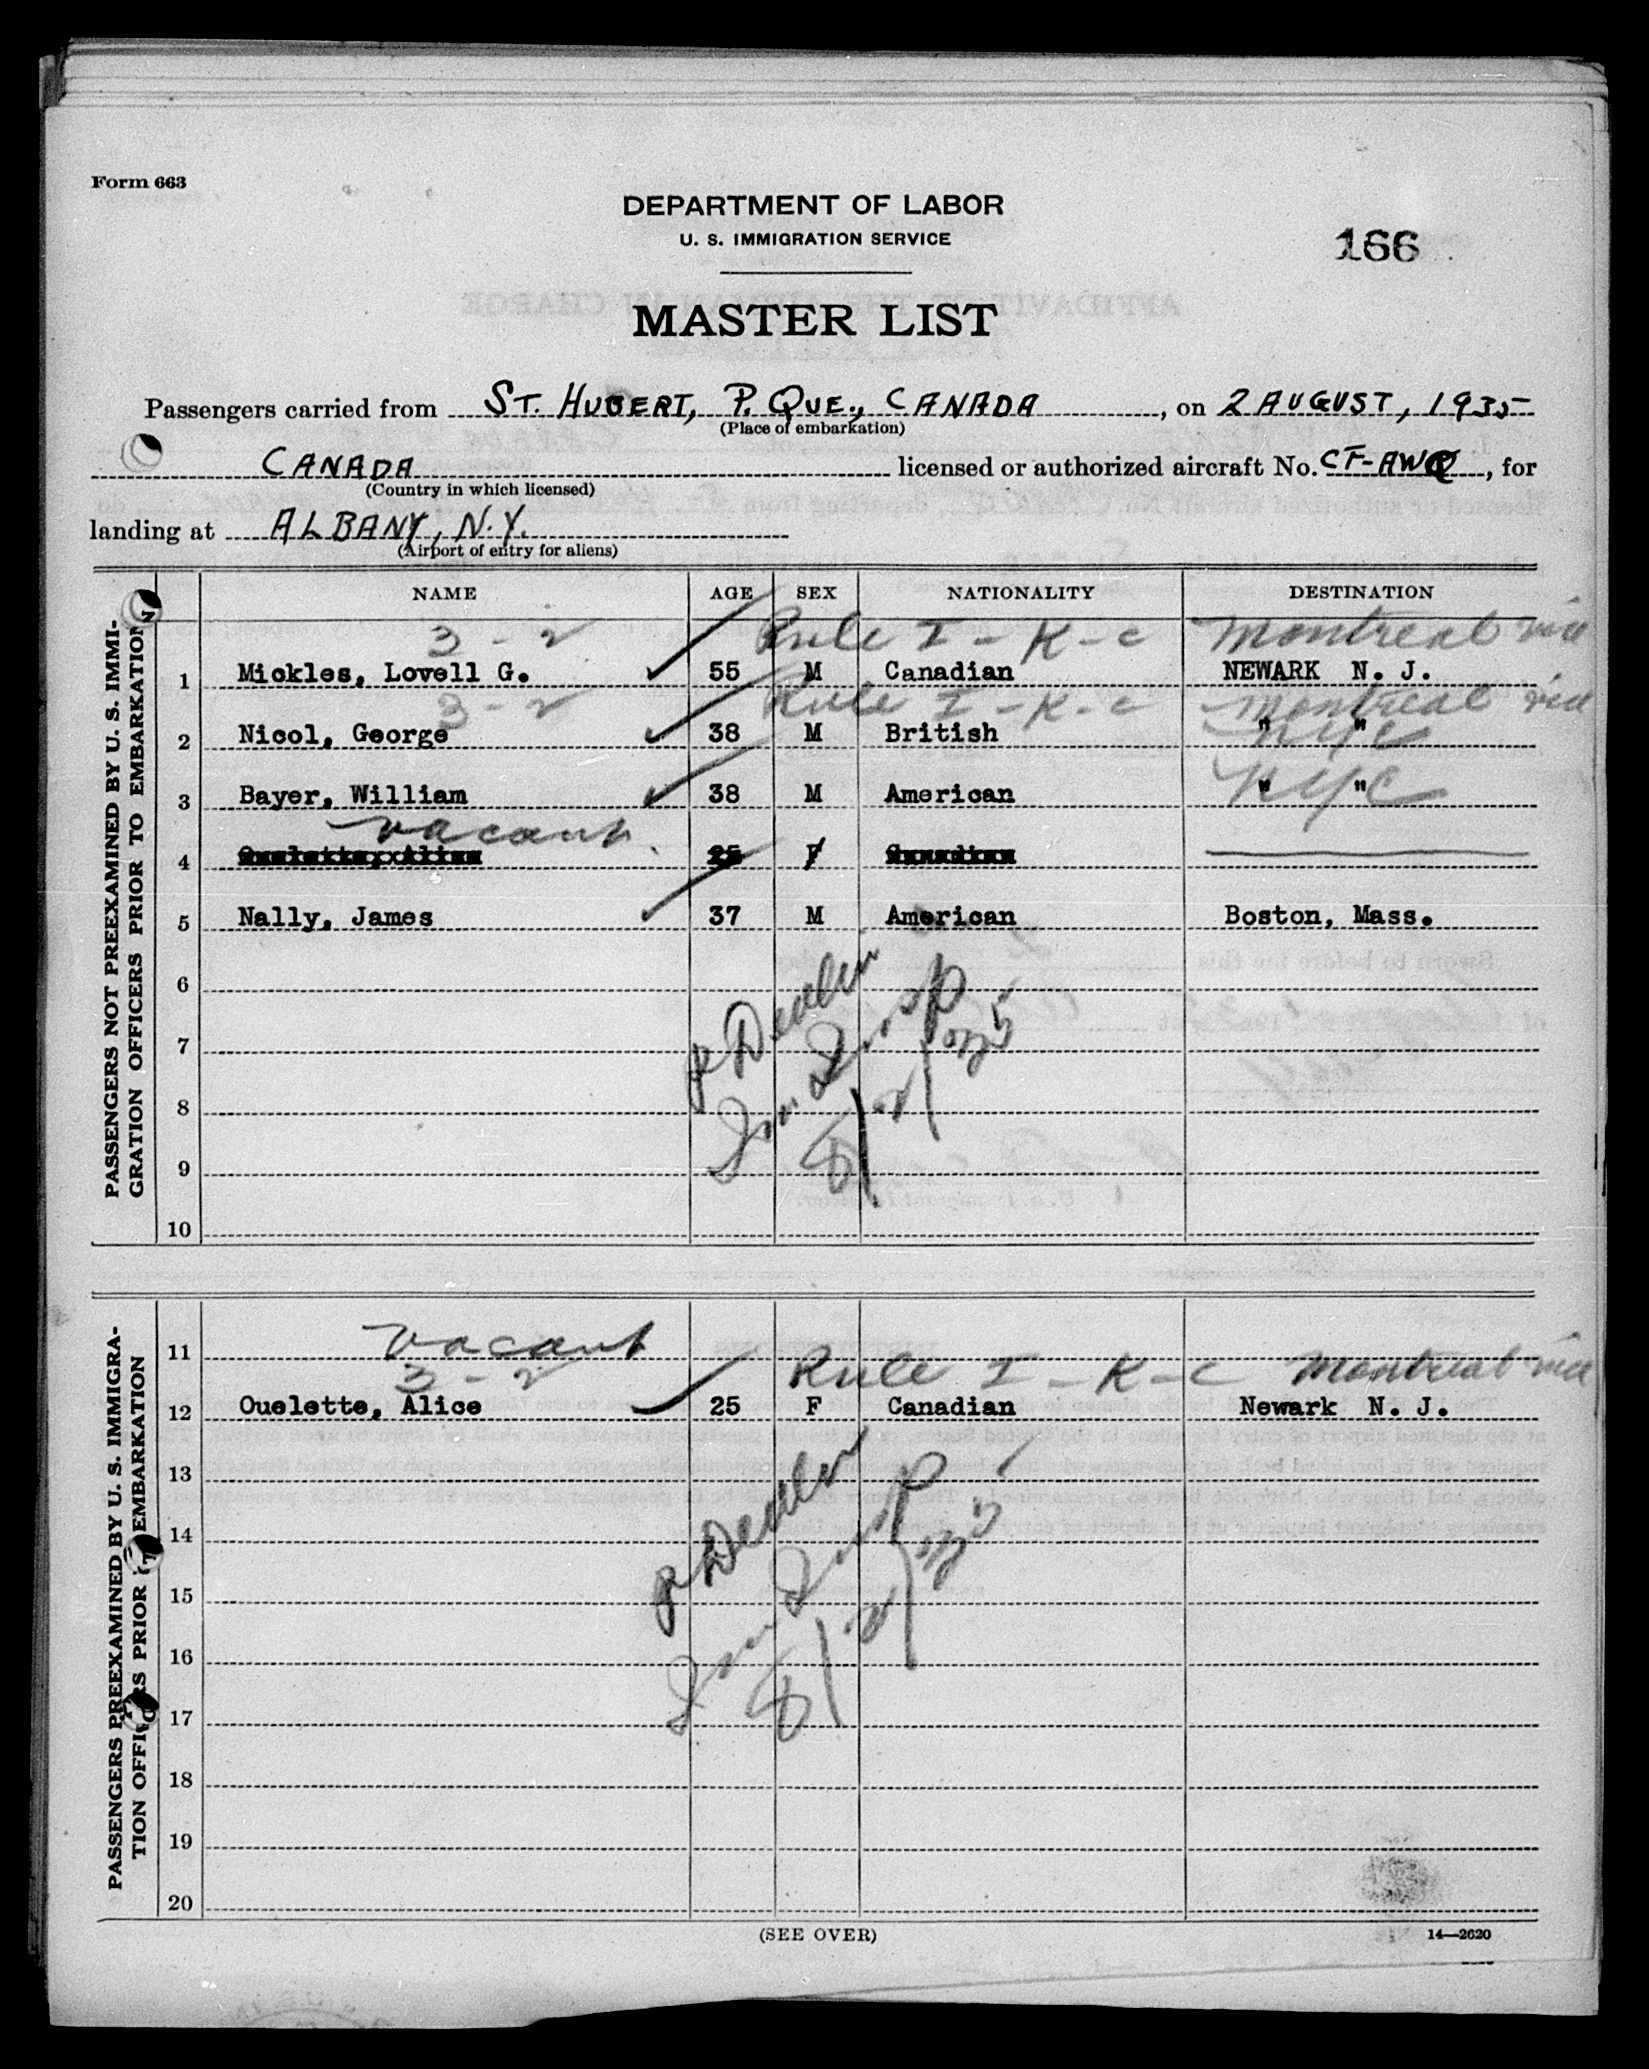 Form 663
DEPARTMENT OF LABOR
U. S. IMMIGRATION SERVICE
166
MASTER LIST
Passengers carried from ST. HUBERT, P. QUE., CANADA, on 2 AUGUST, 1935
(Place of embarkation)
CANADA licensed or authorized aircraft No. CF-AWQ, for
(Country in which licensed)
landing at ALBANY, N.Y.
(Airport of entry for aliens)
PASSENGERS NOT PREEXAMINED BY U. S. IMMI-
GRATION OFFICERS PRIOR TO EMBARKATION
NAME AGE SEX NATIONALITY DESTINATION
3 - 2 Rule I - K - c Montreal via
1 Mickles, Lovell G. 55 M Canadian NEWARK N. J.
3 - 2 Rule I - K - c Montreal via
2 Nicol, George 38 M British " " NYC
3 Bayer, William 38 M American " " NYC
vacant
4 25 F
5 Nally, James 37 M American Boston, Mass.
6
7
8
9
10
Imm Insp
8/2/35
PASSENGERS PREEXAMINED BY U. S. IMMIGRA-
TION OFFICERS PRIOR TO EMBARKATION
11 vacant
3 - 2 Rule I - K - c Montreal via
12 Ouelette, Alice 25 F Canadian Newark N. J.
13
14
15
16
17
18
19
20
Imm Insp
8/2/35
(SEE OVER)
14—2620